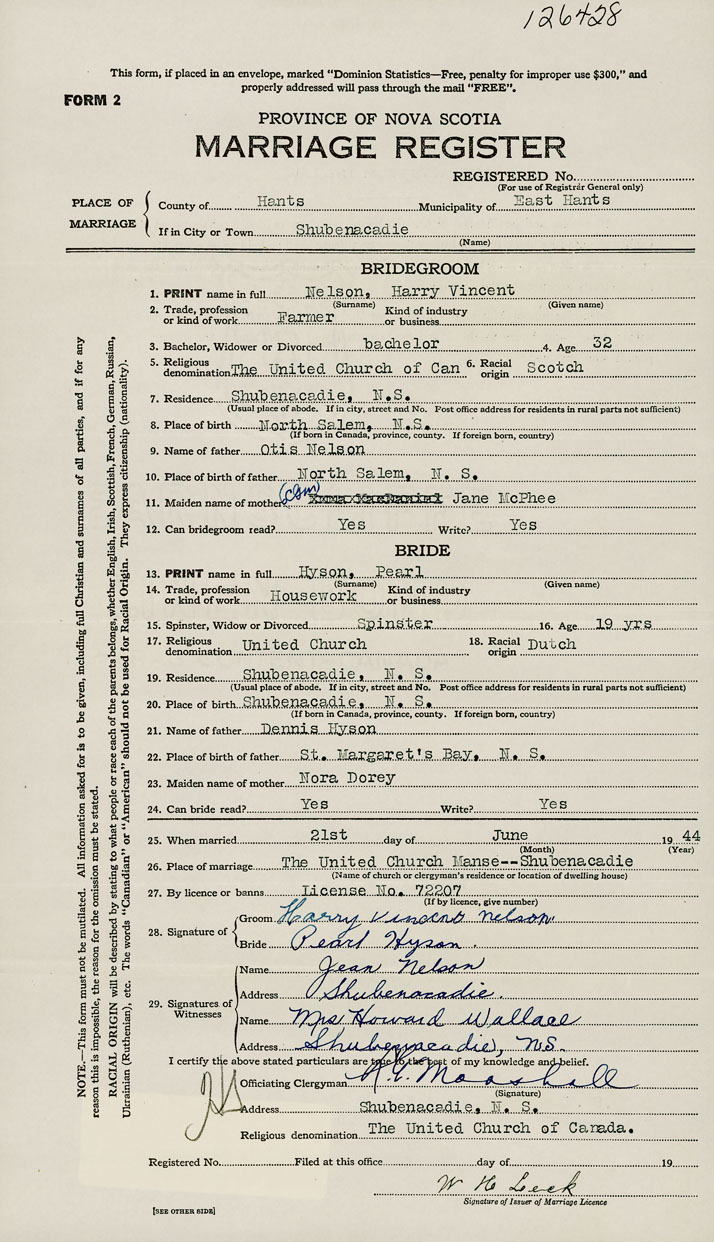 126428
This form, if placed in an envelope, marked "Dominion Statistics—Free, penalty for improper use $300," and
properly addressed will pass through the mail "FREE".
FORM 2
PROVINCE OF NOVA SCOTIA
MARRIAGE REGISTER
REGISTERED No.
(For use of Registrar General only)
PLACE OF MARRIAGE
County of Hants Municipality of East Hants
If in City or Town Shubenacadie
(Name)
BRIDEGROOM
1. PRINT name in full Nelson, Harry Vincent
(Surname) (Given name)
2. Trade, profession or kind of work Farmer Kind of industry or business
3. Bachelor, Widower or Divorced bachelor 4. Age 32
5. Religious denomination The United Church of Can 6. Racial origin Scotch
7. Residence Shubenacadie, N.S.
(Usual place of abode. If in city, street and No. Post office address for residents in rural parts not sufficient)
8. Place of birth North Salem, N.S.
(If born in Canada, province, county. If foreign born, country)
9. Name of father Otis Nelson
10. Place of birth of father North Salem, N. S.
11. Maiden name of mother Jane McPhee
12. Can bridegroom read? Yes Write? Yes
BRIDE
13. PRINT name in full Hyson, Pearl
(Surname) (Given name)
14. Trade, profession or kind of work Housework Kind of industry or business
15. Spinster, Widow or Divorced Spinster 16. Age 19 yrs
17. Religious denomination United Church 18. Racial origin Dutch
19. Residence Shubenacadie, N. S.
(Usual place of abode. If in city, street and No. Post office address for residents in rural parts not sufficient)
20. Place of birth Shubenacadie, N. S.
(If born in Canada, province, county. If foreign born, country)
21. Name of father Dennis Hyson
22. Place of birth of father St. Margaret's Bay, N. S.
23. Maiden name of mother Nora Dorey
24. Can bride read? Yes Write? Yes
25. When married 21st day of June 19 44
(Month) (Year)
26. Place of marriage The United Church Manse--Shubenacadie
(Name of church or clergyman's residence or location of dwelling house)
27. By licence or banns License No. 72207
(If by licence, give number)
28. Signature of
Groom Harry Vincent Nelson
Bride Pearl Hyson.
29. Signatures of Witnesses
Name Jean Nelson
Address Shubenacadie.
Name Mrs Howard Wallace
Address Shubenacadie, N.S.
I certify the above stated particulars are true to the best of my knowledge and belief.
Officiating Clergyman
(Signature)
Address Shubenacadie, N. S.
Religious denomination The United Church of Canada.
Registered No. Filed at this office day of 19
W H Leck
Signature of Issuer of Marriage Licence
[SEE OTHER SIDE]
NOTE.—This form must not be mutilated. All information asked for is to be given, including full Christian and surnames of all parties, and if for any
reason this is impossible, the reason for the omission must be stated.
RACIAL ORIGIN will be described by stating to what people or race each of the parents belongs, whether English, Irish, Scottish, French, German, Russian,
Ukrainian (Ruthenian), etc. The words "Canadian" or "American" should not be used for Racial Origin. They express citizenship (nationality).